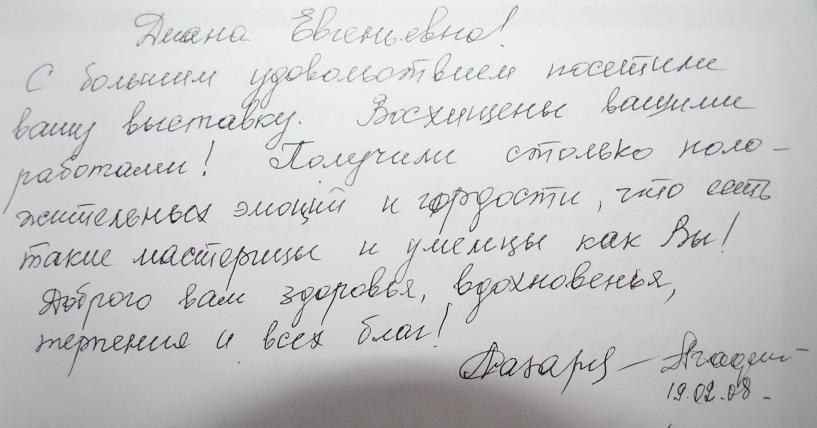 Диана Евгеньевна!
С большим удовольствием посетили
вашу выставку. Восхищены вашими
работами! Получили столько поло-
жительных эмоций и гордости, что есть
такие мастерицы и умелицы как Вы!
Доброго вам здоровья, вдохновенья,
терпения и всех благ!
19.02.08.